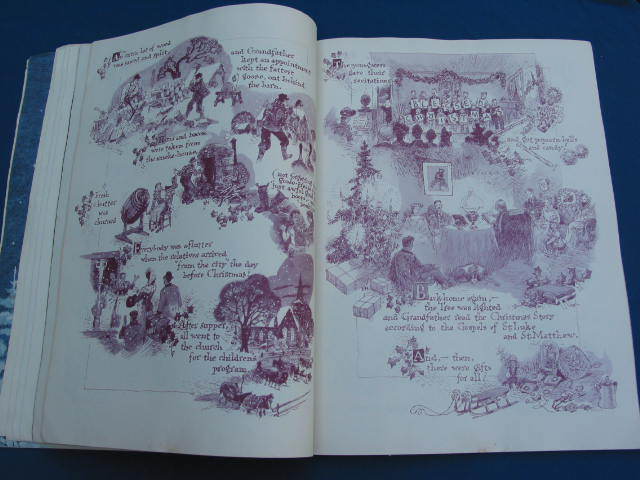 An extra lot of wood
was sawed and split,
and Grandfather
kept an appointment
with the fattest
goose, out behind
the barn.
Hams and bacon
were taken from
the smoke-house.
Fresh
butter
was
churned
Everybody was aflutter
when the relatives arrived
from the city the day
before Christmas!
After supper,
all went to
the church
for the children's
program.
The youngsters
gave their
recitations
BLESSED
CHRISTMAS
and got popcorn balls
and candy.
Back home again,—
the tree was lighted
and Grandfather read the Christmas Story
according to the Gospels of St. Luke
and St. Matthew.
And,— then,
there were gifts
for all!